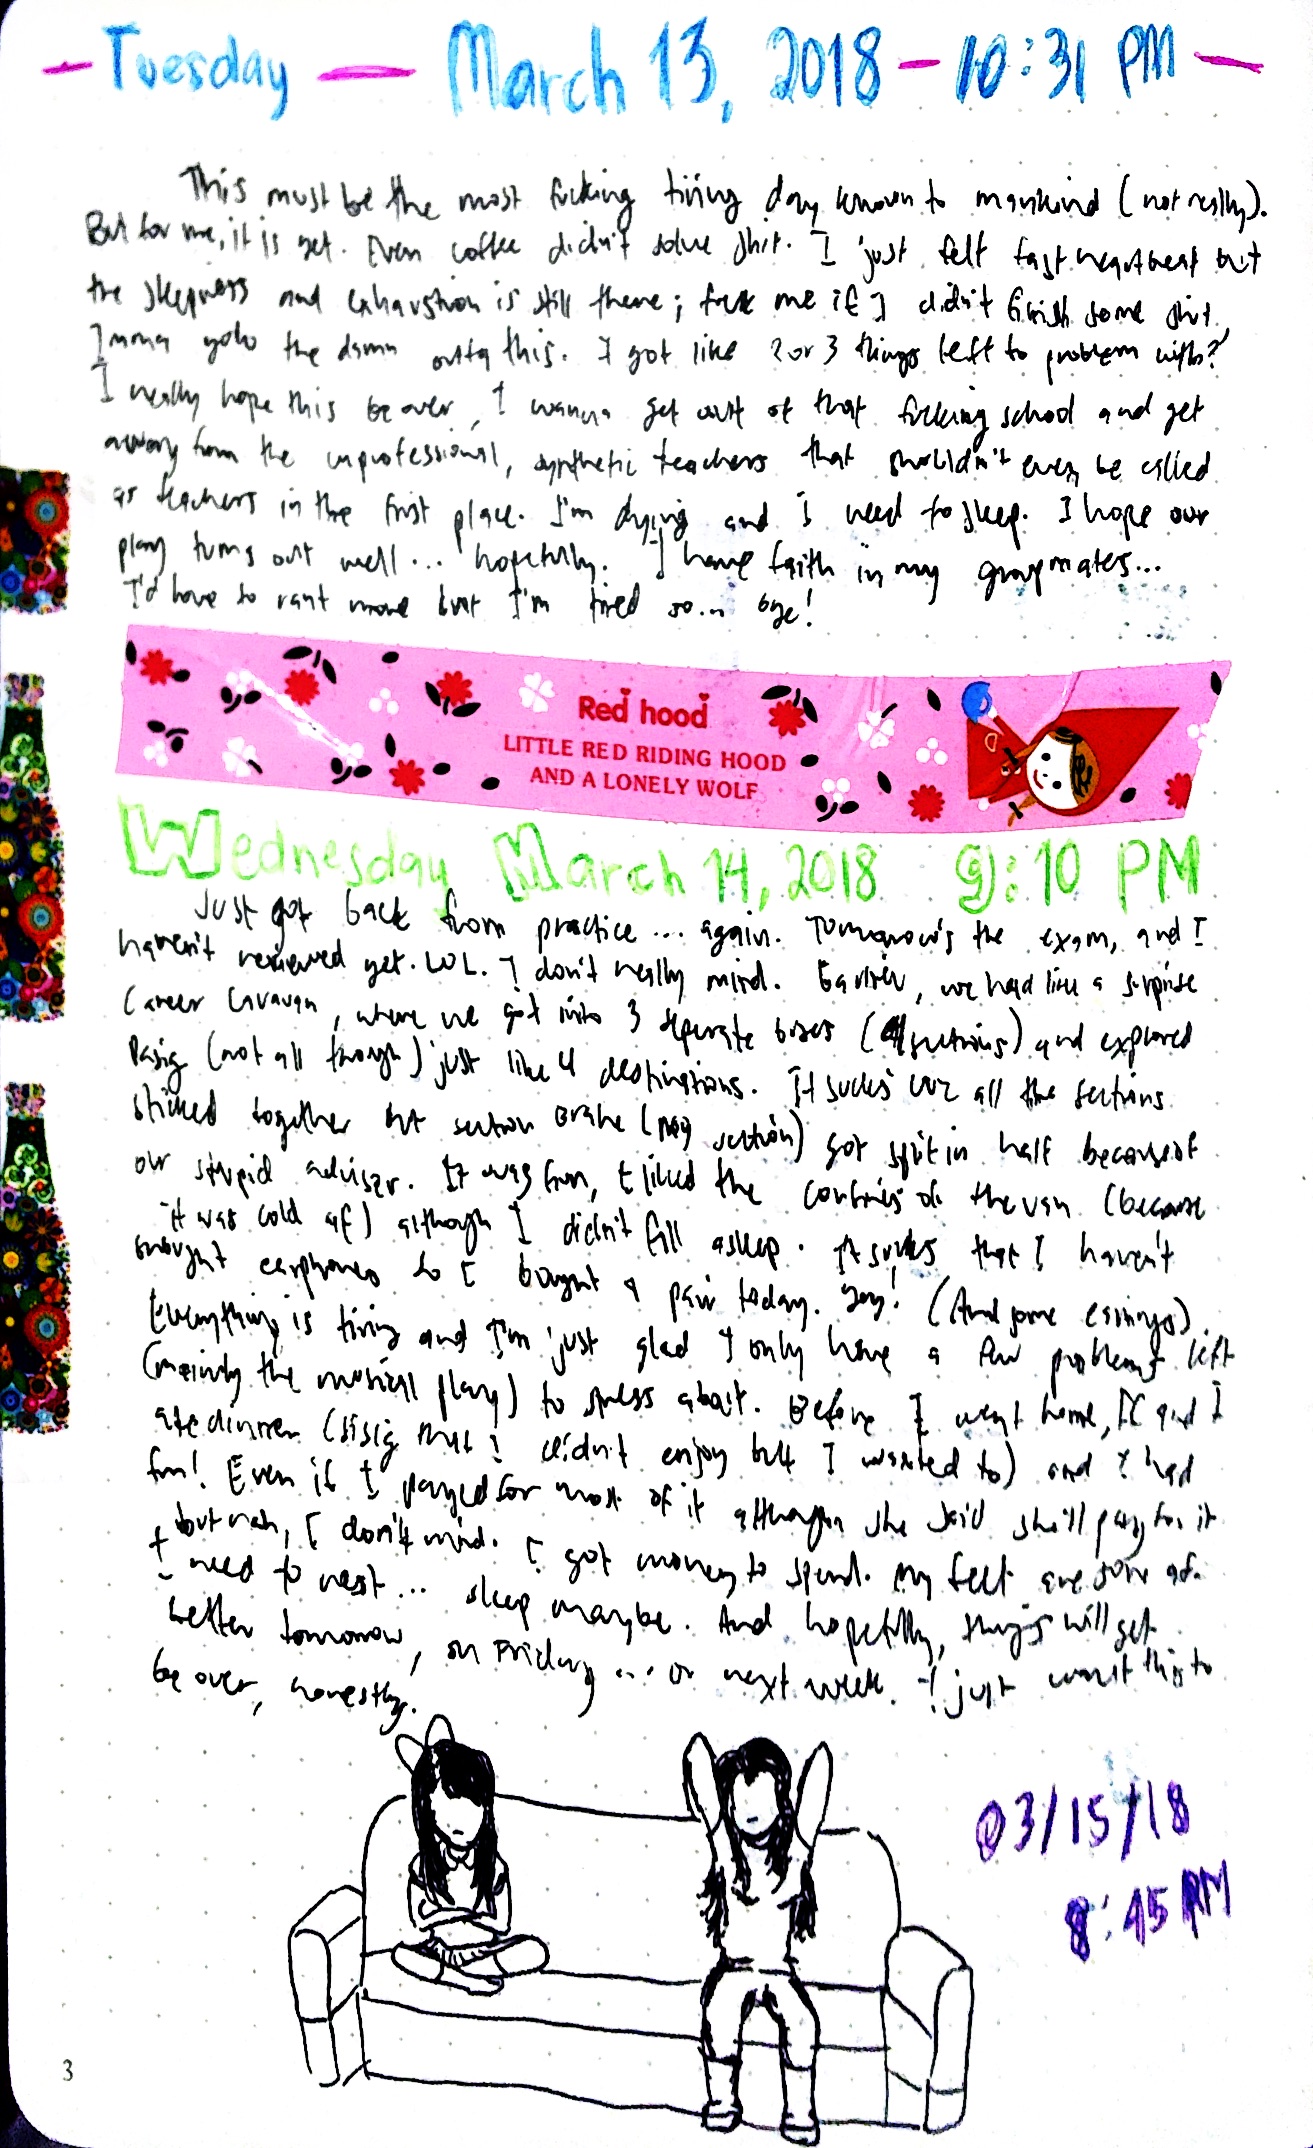 - Tuesday — March 13, 2018 - 10:31 PM -
This must be the most fucking tiring day known to mankind (not really).
But for me, it is yet. Even coffee didn't solve shit. I just felt fast heartbeat but
the sleepiness and exhaustion is still there; fuck me if I didn't finish some shit,
Imma yolo the damn outta this. I got like 2 or 3 things left to problem with?
I really hope this be over, I wanna get out of that fucking school and get
away from the unprofessional, synthetic teachers that shouldn't even be called
as teachers in the first place. I'm dying and I need to sleep. I hope our
play turns out well... hopefully. I have faith in my groupmates...
I'd love to rant more but I'm tired so... bye!
Red hood
LITTLE RED RIDING HOOD
AND A LONELY WOLF
Wednesday March 14, 2018 9:10 PM
Just got back from practice... again. Tomorrow's the exam, and I
haven't reviewed yet. LOL. I don't really mind. Earlier, we had like a surprise
Career Caravan, where we got into 3 separate buses (sections) and explored
Pasig (not all though) just like 4 destinations. It sucks cuz all the sections
sticked together but section Brahe (my section) got split in half because of
our stupid adviser. It was fun, I liked the comfiness of the van (because
it was cold af) although I didn't fall asleep. It sucks that I haven't
brought earphones so I bought a pair today. Yay! (And some earrings).
Everything is tiring and I'm just glad I only have a few problems left
(mainly the musical play) to stress about. Before I went home, and I
ate dinner (sisig that I didn't enjoy but I wanted to) and I had
fun! Even if I payed for most of it although she said she'll pay for it
but nah, I don't mind. I got money to spend. My feet are sore af.
I need to rest... sleep maybe. And hopefully, things will get
better tomorrow, on Friday... or next week. I just want this to
be over, honestly.
03/15/18
8:45 PM
3